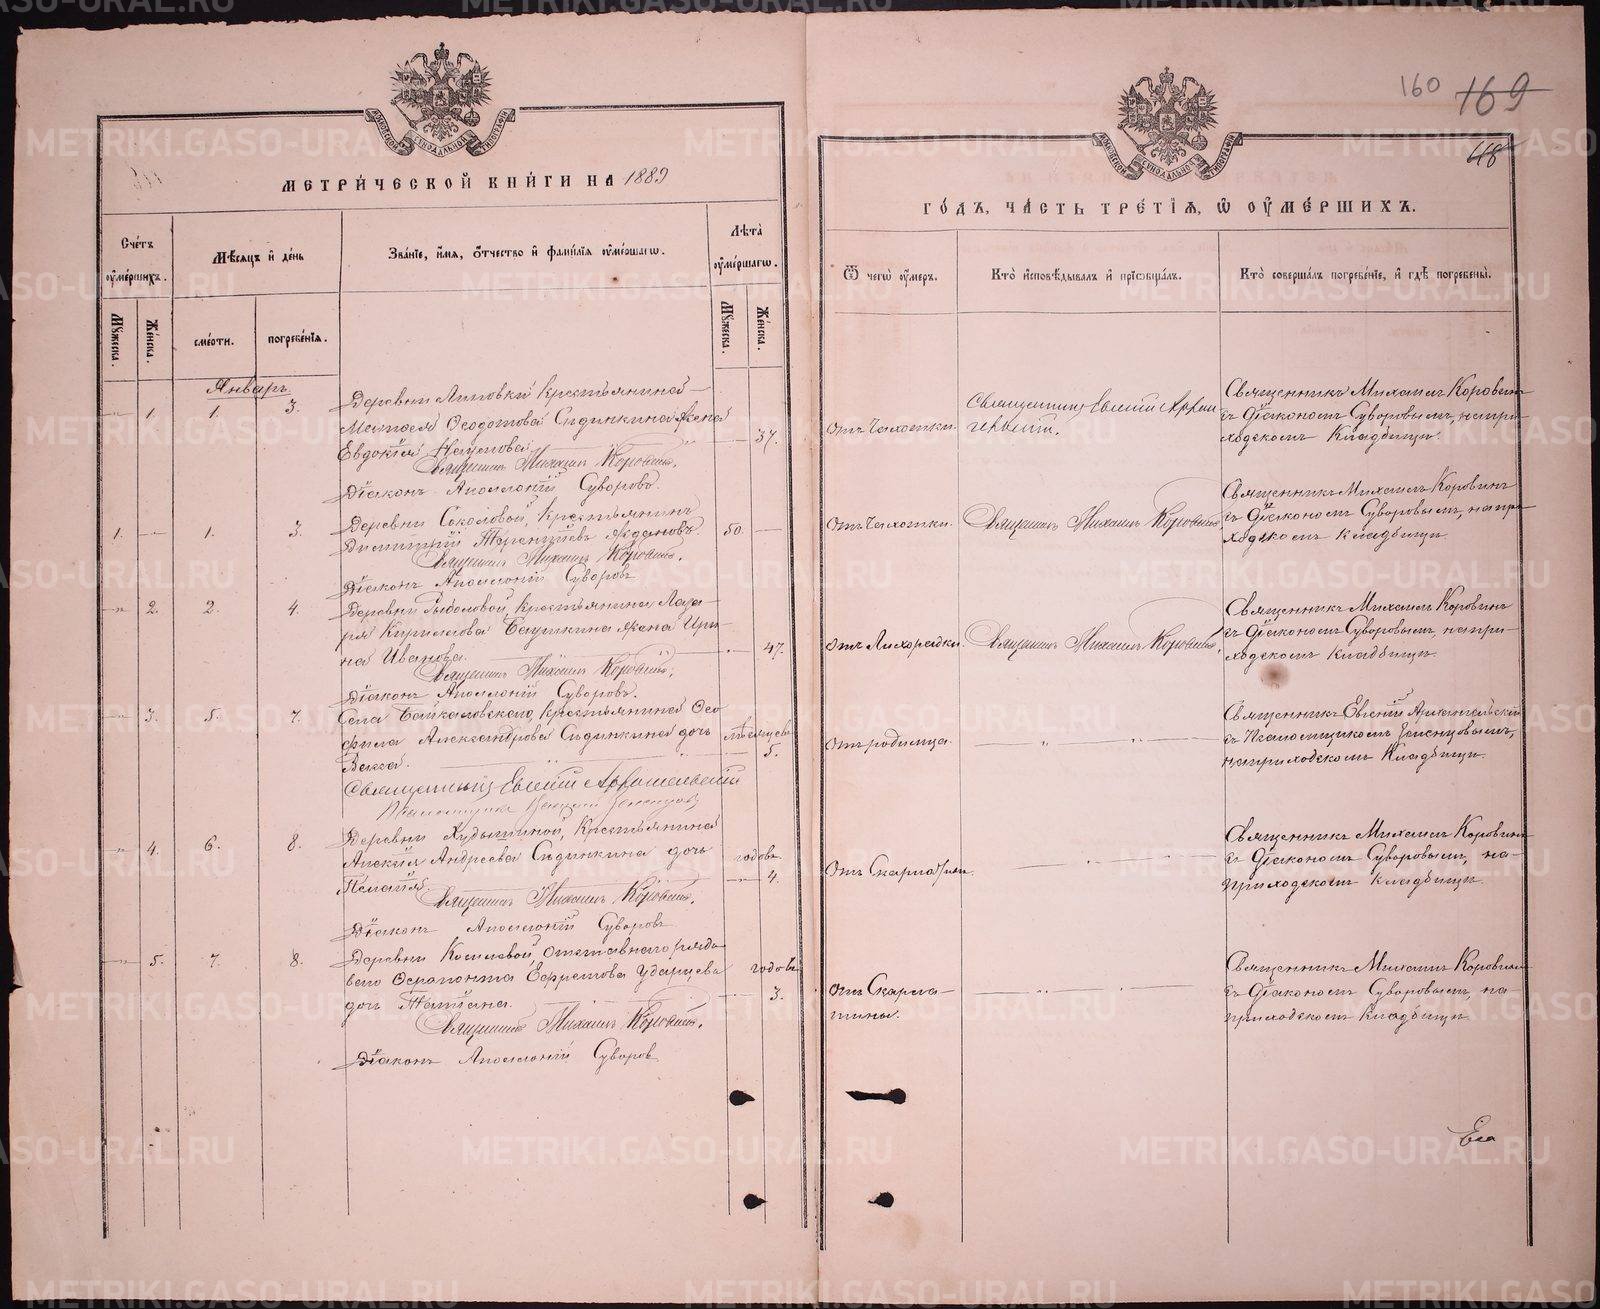 МЕТРИ́ЧЕСКОЙ КНИ́ГИ НА 1889
ГО́ДЪ, ЧА́СТЬ ТРЕ́ТІѦ, Ѿ ОУ҆МЕ́РШИХЪ.
160 169
118
Сче́тъ оу҆ме́ршихъ.
Мꙋ́жеска.
Же́нска.
Мѣ́сѧцъ и҆ де́нь
сме́рти.
погребе́нїѧ.
Зва́нїе, и҆́мѧ, ѻ҆́тчество и҆ фами́лїѧ оу҆ме́ршагѡ.
Лѣ́та оу҆ме́ршагѡ.
Мꙋ́жеска.
Же́нска.
Ѿ чегѡ̀ оу҆́меръ.
Кто̀ и҆сповѣ́дывалъ и҆ прїѡбща́лъ.
Кто̀ соверша́лъ погребе́нїе, и҆ гдѣ̀ погребены̀.
Январь.
1. 1. 3.
Деревни Липовки Крестьянина
Матвея Ѳеодотова Сединкина жена
Евдокія Наумова
37.
Священникъ Михаилъ Коровинъ.
Діаконъ Аполлоній Суворовъ.
отъ Чахотки.
Священникъ Евгеній Архан
гельскій.
Священникъ Михаилъ Коровинъ
съ Діакономъ Суворовымъ, на при-
ходскомъ Кладбищѣ.
1. 1. 3.
Деревни Соколовой, Крестьянинъ
Димитрій Терентіевъ Ждановъ.
50.
Священникъ Михаилъ Коровинъ.
Діаконъ Аполлоній Суворовъ
отъ Чахотки.
Священникъ Михаилъ Коровинъ
Священникъ Михаилъ Коровинъ
съ Діакономъ Суворовымъ, на при-
ходскомъ кладбищѣ
2. 2. 4.
Деревни Рыболовой, Крестьянина Лаза-
ря Кириллова Баушкина жена Ири-
на Иванова.
47.
Священникъ Михаилъ Коровинъ.
Діаконъ Аполлоній Суворовъ.
отъ Лихорадки.
Священникъ Михаилъ Коровинъ.
Священникъ Михаилъ Коровинъ
съ Діакономъ Суворовымъ, на при-
ходскомъ кладбищѣ.
3. 5. 7.
Села Байкаловскаго, Крестьянина Ѳео
фила Александрова Сединкина дочь
Васса.
мѣсяцевъ
5.
Священникъ Евгеній Архангельскій
отъ родимца.
Священникъ Евгеній Архангельскій
съ Псаломщикомъ
на приходскомъ Кладбищѣ.
4. 6. 8.
Деревни Худышиной, Крестьянина
Алексія Андреева Сединкина дочь
Пелагія.
годовъ
4.
Священникъ Михаилъ Коровинъ.
Діаконъ Аполлоній Суворовъ
отъ Скарлатины.
Священникъ Михаилъ Коровинъ
съ Діакономъ Суворовымъ, на-
приходскомъ кладбищѣ.
5. 7. 8.
Деревни отставнаго рядо
ваго Ѳерапонта Ефремова Ударцева
дочь Татіана.
годовъ
3.
Священникъ Михаилъ Коровинъ.
Діаконъ Аполлоній Суворовъ
отъ Скарла-
тины.
Священникъ Михаилъ Коровинъ
съ Діакономъ Суворовымъ, на-
приходскомъ кладбищѣ.
METRIKI.GASO-URAL.RU